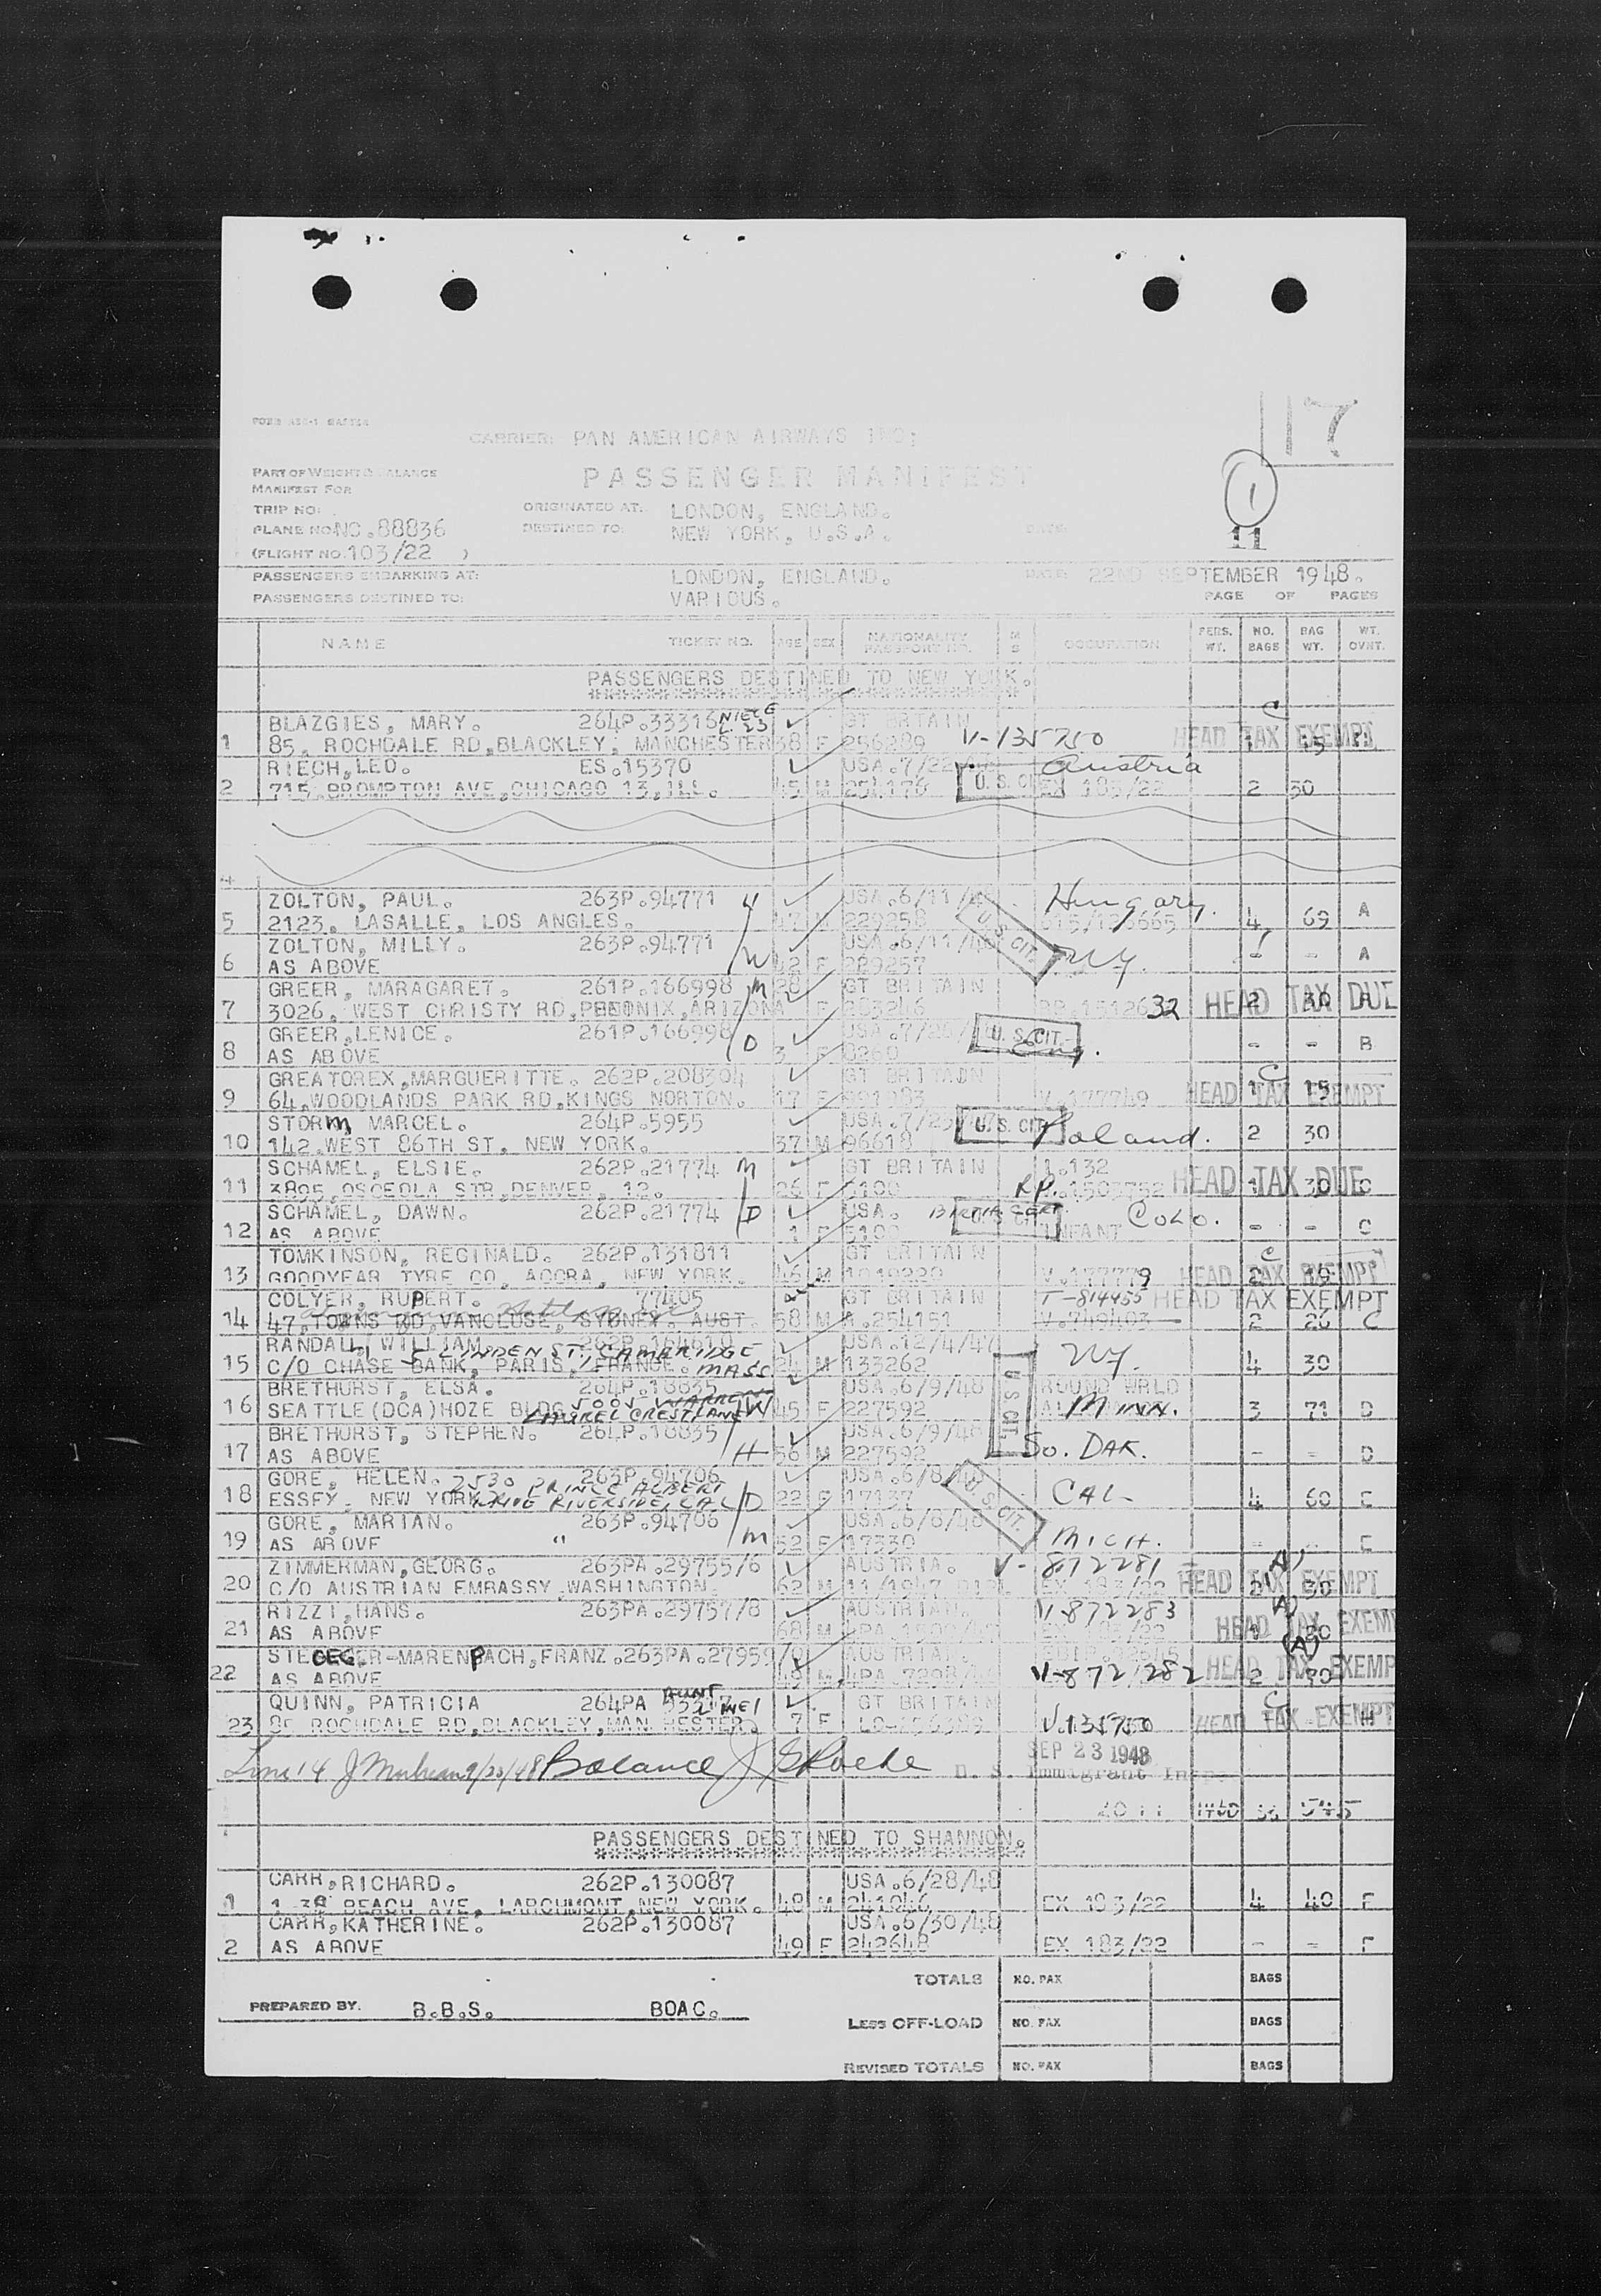 17
CARRIER: PAN AMERICAN AIRWAYS INC;
PART OF WEIGHT & BALANCE
PASSENGER MANIFEST
MANIFEST FOR
1
TRIP NO:
ORIGINATED AT: LONDON, ENGLAND.
PLANE NO. NO.88836
DESTINED TO: NEW YORK, U.S.A.
DATE:
11
(FLIGHT NO. 103/22 )
PASSENGERS EMBARKING AT: LONDON, ENGLAND. DATE: 22ND SEPTEMBER 1948.
PASSENGERS DESTINED TO: VARIOUS. PAGE OF PAGES
NAME TICKET NO. AGE SEX NATIONALITY PASSPORT NO. M S OCCUPATION PERS. WT. NO. BAGS BAG WT. WT. OVNT.
PASSENGERS DESTINED TO NEW YORK.
BLAZGIES, MARY. 264P.33316 NIECE L. 23 GT BRITAIN C
1 85, ROCHDALE RD,BLACKLEY, MANCHESTER 38 F 256289 V-135750 HEAD TAX EXEMPT 15
RIECH,LEO. ES.15370 USA.7/22/48 Austria
2 715 BROMPTON AVE,CHICAGO 13,ILL. 45 M 254176 U. S. CIT. EX 183/22 2 30
4
ZOLTON, PAUL. 263P.94771 H USA.6/11/48 Hungary.
5 2123, LASALLE, LOS ANGLES. 47 M 229258 U. S. CIT. 4 69 A
ZOLTON, MILLY. 263P.94771 USA.6/11/48
6 AS ABOVE W 42 F 229257 NY. - - A
GREER, MARAGARET. 261P.166998 M 28 GT BRITAIN
7 3026, WEST CHRISTY RD, ARIZONA F 203246 RP.1512632 HEAD TAX DUE 2 30
GREER,LENICE. 261P.166998 USA.7/26/ U. S. CIT.
8 AS ABOVE D 3 F 8260 Eng. - - B
GREATOREX,MARGUERITTE. 262P.208304 GT BRITAIN C
9 64,WOODLANDS PARK RD,KINGS NORTON. 17 F V.177749 HEAD TAX EXEMPT 1 15
STORM MARCEL. 264P.5955 USA.7/29/ U. S. CIT.
10 142,WEST 86TH ST, NEW YORK. 37 M 96618 Poland. 2 30
SCHAMEL, ELSIE. 262P.21774 M GT BRITAIN I.132
11 3895,OSCEOLA STR,DENVER, 12. 26 F 5100 RP.1503752 HEAD TAX DUE 1 30 C
SCHAMEL, DAWN. 262P.21774 D USA. BIRTH CERT. COLO.
12 AS ABOVE 1 F 5100 U. S. CIT. INFANT - - C
TOMKINSON, REGINALD. 262P.131811 GT BRITAIN C
13 GOODYEAR TYRE CO, ACCRA, NEW YORK. 46 M 1010220 V.177779 HEAD TAX EXEMPT
COLYER, RUPERT. 77405 GT BRITAIN T-814455 HEAD TAX EXEMPT
14 47,TOWNS RD,VANCLUSE, SYDNEY, AUST. 58 M A.254151 V.749403 2 26 C
RANDALL, WILLIAM. 262P.164610 USA.12/4/47
LINDEN ST. CAMBRIDGE
15 C/O CHASE BANK, PARIS, FRANCE. MASS 24 M 133262 NY. 4 30
BRETHURST, ELSA. 264P.18835 USA.6/9/48 ROUND WRLD
16 SEATTLE(DCA)HOZE BLDG 5005 WARREN W 45 F 227592 U S CIT. MINN. 3 71 D
LAUREL CREST LANE
BRETHURST, STEPHEN. 264P.18835 USA.6/9/48
17 AS ABOVE H 56 M 227592 SO. DAK. - - D
GORE, HELEN. 263P.94706 USA.6/8/48
2530 PRINCE ALBERT
18 ESSEX, NEW YORK. DRIVE RIVERSIDE, CAL D 22 F 17137 U. S. CIT. CAL- 4 60 E
GORE, MARIAN. 263P.94706 USA.6/8/48
19 AS ABOVE " M 52 F 17330 MICH. - - E
ZIMMERMAN,GEORG. 263PA.29755/6 AUSTRIA. V-872281 (A)
20 C/O AUSTRIAN EMBASSY,WASHINGTON. 62 M 11/1947 DIPL EX 183/22 HEAD TAX EXEMPT 2 30
RIZZI,HANS. 263PA.29757/8 AUSTRIAN. V-872283 (A)
21 AS ABOVE 68 M HEAD TAX EXEM
STEGER-MARENPACH,FRANZ.263PA.27959/0 AUSTRIAN. (A)
22 AS ABOVE 49 M V-872282 HEAD TAX EXEMP 2 30
QUINN, PATRICIA 264PA AUNT GT BRITAIN C
23 85 ROCHDALE RD,BLACKLEY,MANCHESTER. 7 F V.135750 HEAD TAX EXEMPT
SEP 23 1948
Line 14 9/23/48 Balance
U. S. Immigrant Insp.
545
PASSENGERS DESTINED TO SHANNON.
CARR,RICHARD. 262P.130087 USA.6/28/48
1 BEACH AVE, LARCHMONT,NEW YORK. 48 M 241046 EX 183/22 4 40 F
CARR,KATHERINE. 262P.130087 USA.6/30/48
2 AS ABOVE 49 F 242648 EX 183/22 - - F
TOTALS NO. PAX BAGS
PREPARED BY. B.B.S. BOAC.
LESS OFF-LOAD NO. PAX BAGS
REVISED TOTALS NO. PAX BAGS